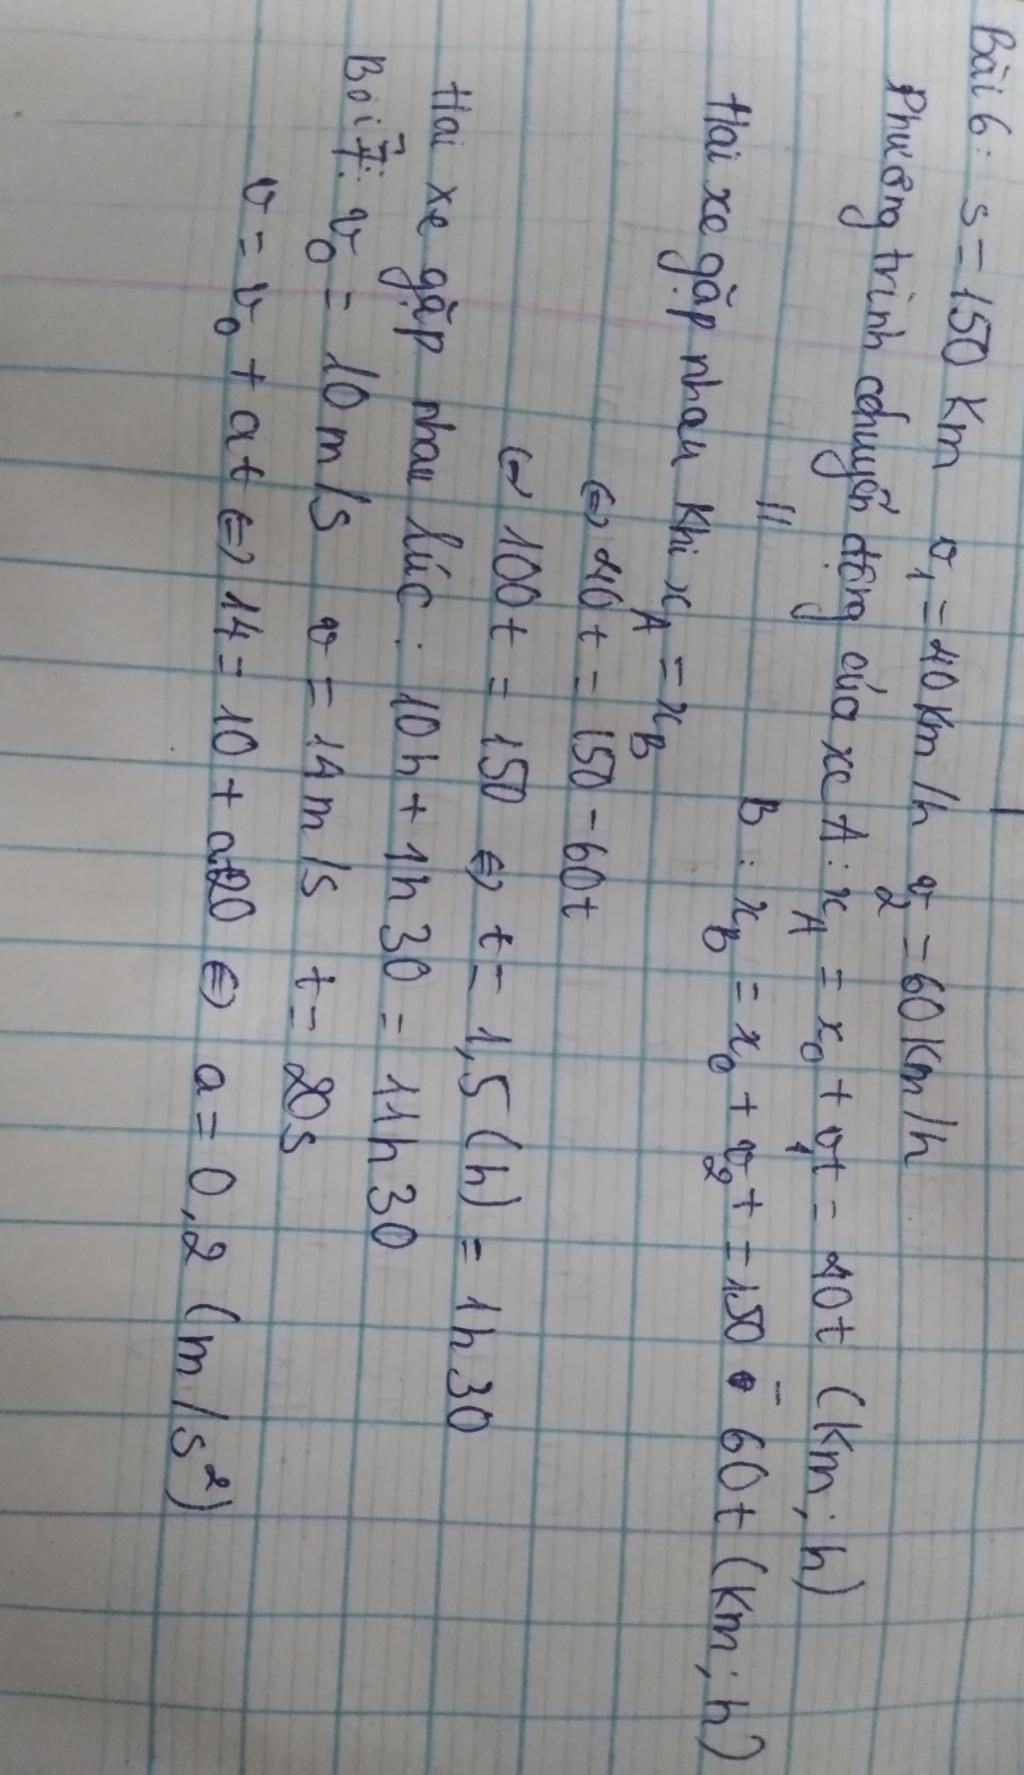 Bài 6: s = 150 Km v₁ = 40 Km/h v₂ = 60 Km/h
Phương trình chuyển động của xe A: x_A = x₀ + v₁t = 40t (Km; h)
" B: x_B = x₀ + v₂t = 150 - 60t (Km; h)
Hai xe gặp nhau khi x_A = x_B
⇔ 40t = 150 - 60t
⇔ 100t = 150 ⇔ t = 1,5 (h) = 1h30
Hai xe gặp nhau lúc: 10h + 1h30 = 11h30
Bài 7: v₀ = 10 m/s v = 14 m/s t = 20s
v = v₀ + at ⇔ 14 = 10 + a20 ⇔ a = 0,2 (m/s²)